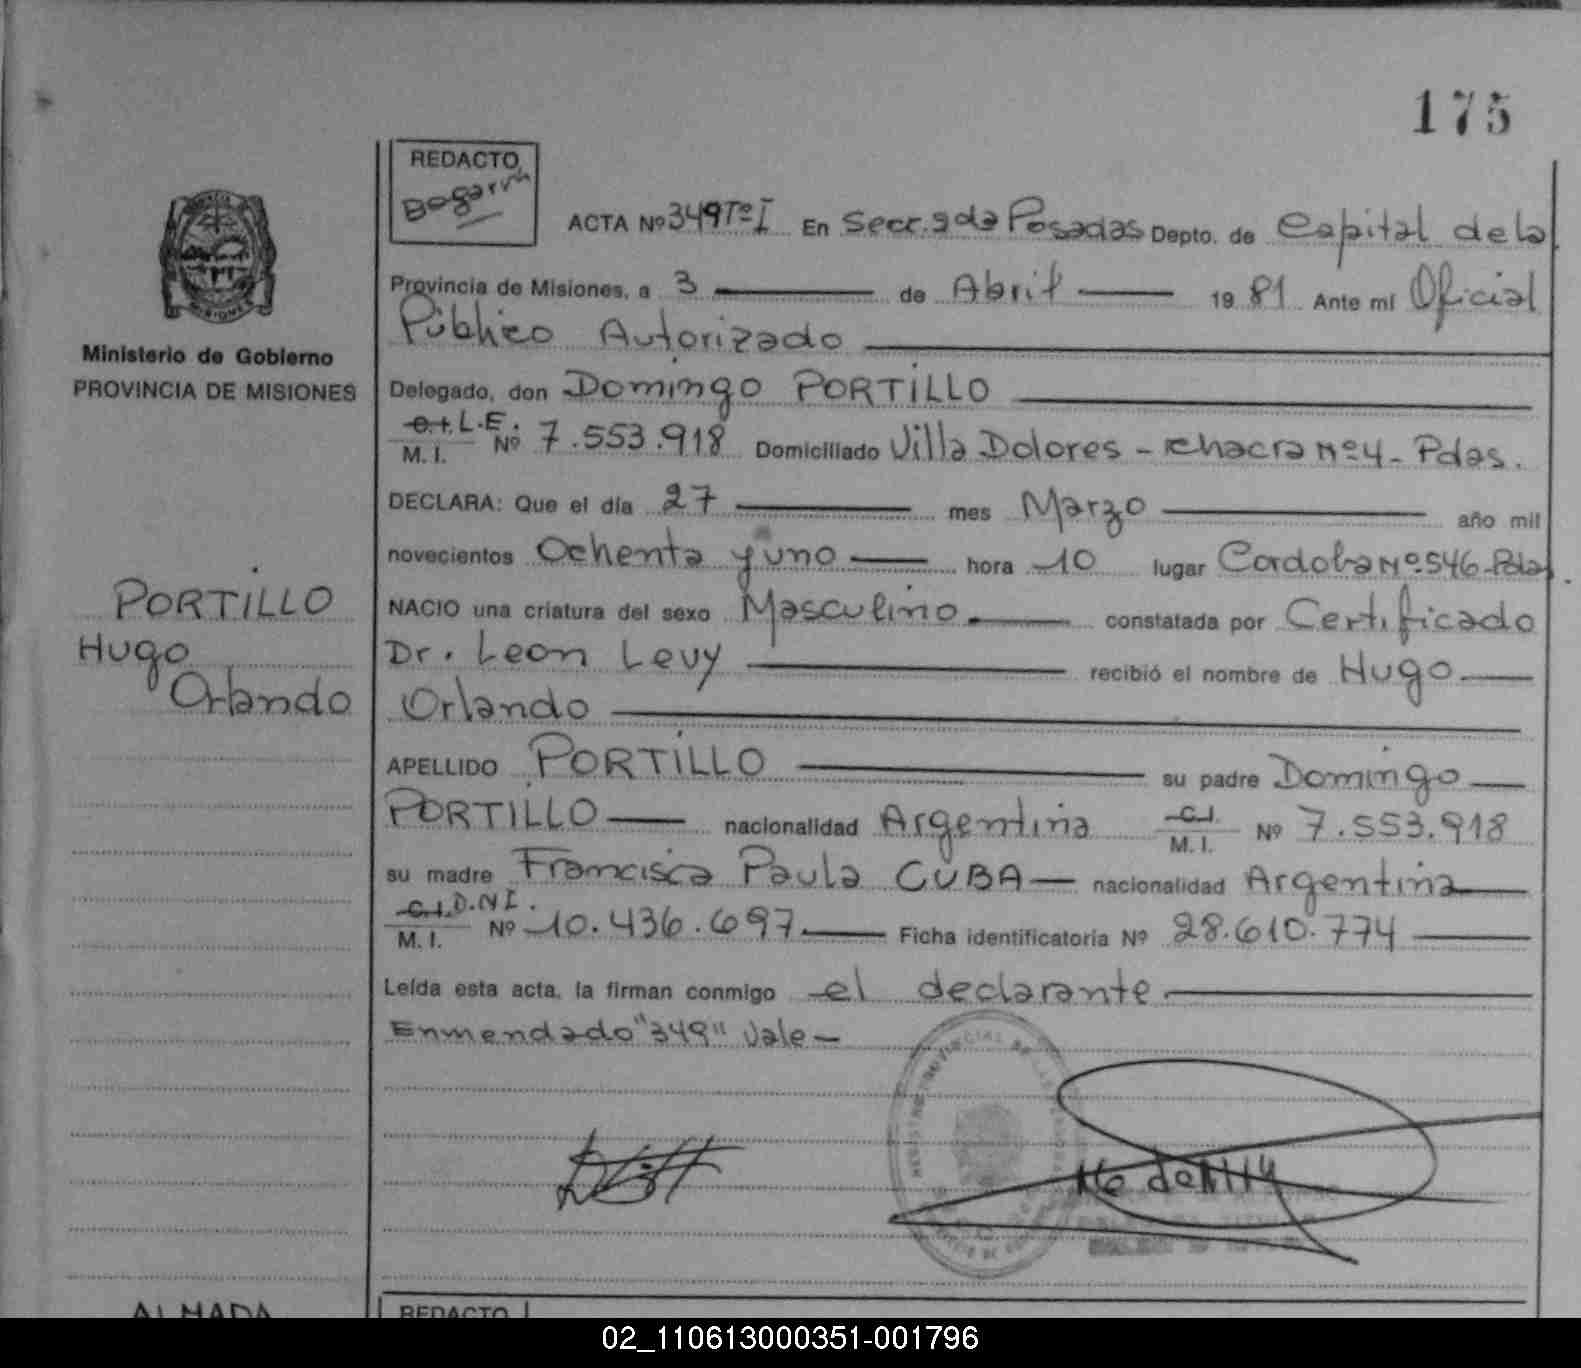 175
REDACTO
Bogarin
ACTA Nº 349 Tº I En Secc. 2da Posadas Depto. de Capital de la
Provincia de Misiones, a 3 de Abril 1981 Ante mí Oficial
Público Autorizado
Ministerio de Gobierno
PROVINCIA DE MISIONES
Delegado, don Domingo PORTILLO
C.I. L.E.
M. I. Nº 7.553.918 Domiciliado Villa Dolores - Chacra Nº 4 - Pdas.
DECLARA: Que el día 27 mes Marzo año mil
novecientos Ochenta y uno hora 10 lugar Cordoba Nº 546 - Pdas.
PORTILLO
Hugo
Orlando
NACIO una criatura del sexo Masculino constatada por Certificado
Dr. Leon Levy recibió el nombre de Hugo
Orlando
APELLIDO PORTILLO su padre Domingo
PORTILLO nacionalidad Argentina C.I.
M. I. Nº 7.553.918
su madre Francisca Paula CUBA nacionalidad Argentina
C.I. D.N.I.
M. I. Nº 10.436.697 Ficha identificatoria Nº 28.610.774
Leída esta acta, la firman conmigo el declarante
Enmendado "349" Vale
ALMADA
REDACTO
02_110613000351-001796